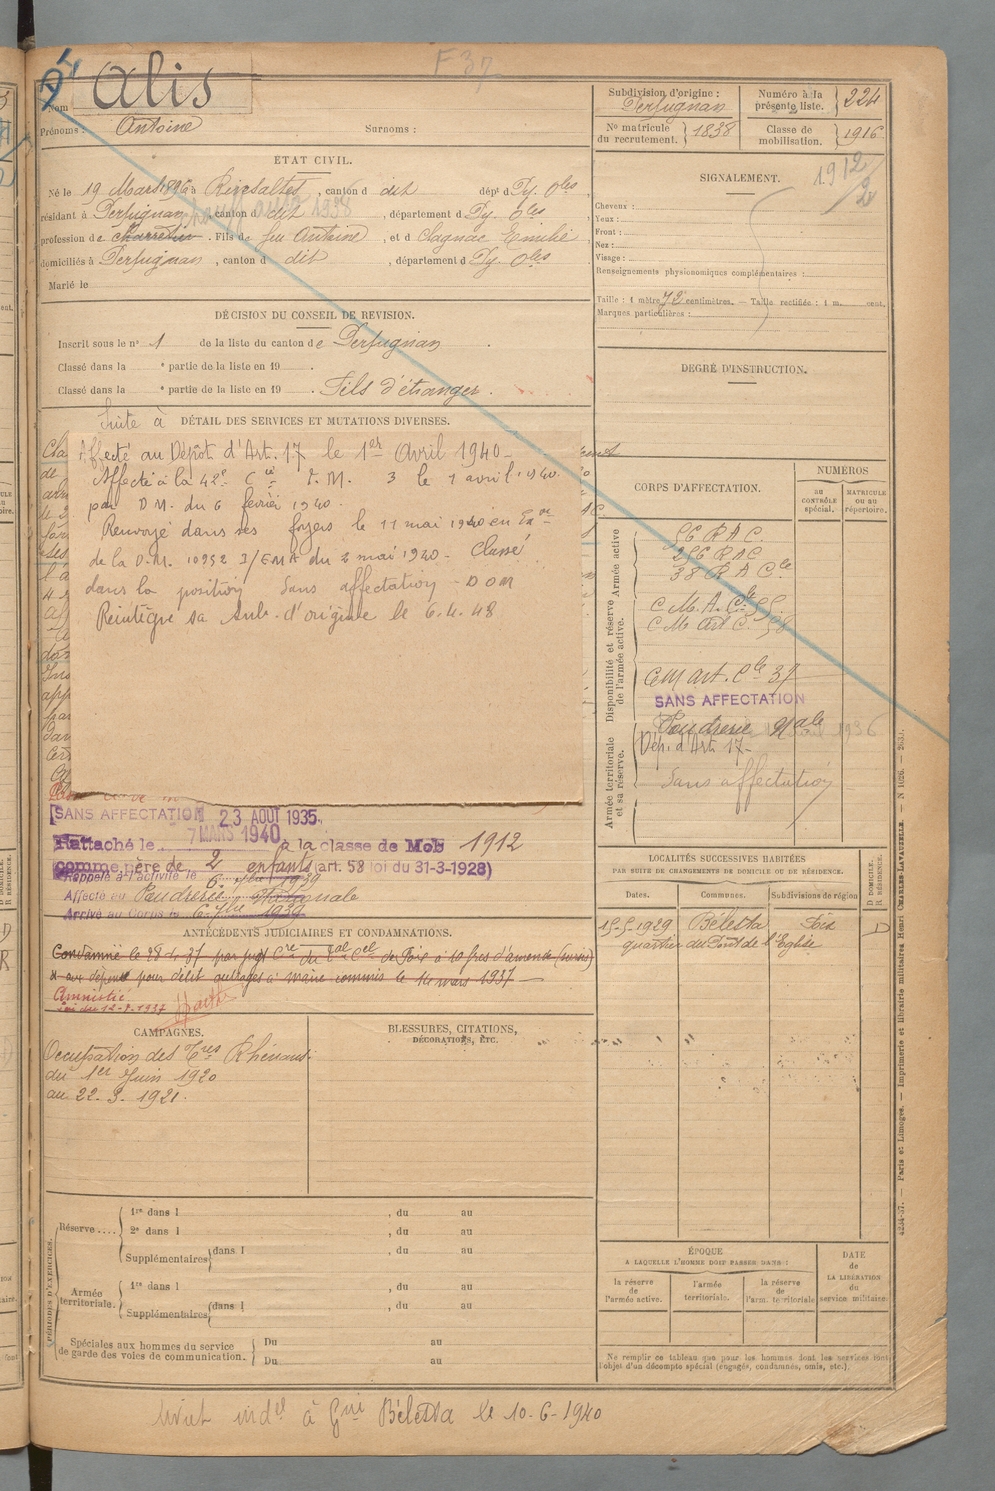 F 37
Nom Alis
Prénoms : Antoine Surnoms :
ETAT CIVIL.
Né le 19 Mars 1896 à Rivesaltes, canton d dit dépt d Py. Oles
résidant à Perpignan, canton d dit, département d Py. Oles
profession de Charretier. Fils de feu Antoine, et d Clagnac Emilie
domiciliés à Perpignan, canton d dit, département d Py. Oles
Marié le
DÉCISION DU CONSEIL DE REVISION.
Inscrit sous le n° 1 de la liste du canton de Perpignan.
Classé dans la e partie de la liste en 19 .
Classé dans la e partie de la liste en 19 . Fils d'étranger.
Suite à DÉTAIL DES SERVICES ET MUTATIONS DIVERSES.
Affecté au Dépôt d'Art. 17 le 1er Avril 1940-
Affecté à la 42e Cie 3 le 1 avril 1940
par D M. du 6 février 1940.
Renvoyé dans ses foyers le 11 mai 1940 en Exon
de la D.M. 10952 I/EMA du 2 mai 1940- Classé
dans la position Sans affectation - DOM
Réintégré sa Sub. d'origine le 6.4.48
SANS AFFECTATION 23 AOUT 1935.
7 MARS 1940
Rattaché le à la classe de Mob 1912
comme père de 2 enfants (art. 58 loi du 31-3-1928)
Rappelé à l'activité le 6 7bre 1939
Affecté eu Poudrerie Nationale
Arrivé au Corps le 6 7bre 1939
ANTÉCÉDENTS JUDICIAIRES ET CONDAMNATIONS.
Condamné le 28.4.37 par jugt Cre du Tal Cel de Foix à 10 frcs d'amende (sursis)
et aux dépens pour délit outrages à maire commis le 14 mars 1937
Amnistié
Loi du 12-7-1937
CAMPAGNES.
Occupation des Tres Rhénans
du 1er Juin 1920
au 22. 3. 1921.
BLESSURES, CITATIONS,
DÉCORATIONS, ETC.
PÉRIODES D'EXERCICES.
Réserve....
1re dans l , du au
2e dans l , du au
Supplémentaires dans l , du au
Armée territoriale.
1re dans l , du au
Supplémentaires dans l , du au
Spéciales aux hommes du service
de garde des voies de communication.
Du au
Du au
Subdivision d'origine :
Perpignan
Numéro à la
présente liste. 224
N° matricule
du recrutement. 1838
Classe de
mobilisation. 1916
1912/2
SIGNALEMENT.
Cheveux :
Yeux :
Front :
Nez :
Visage :
Renseignements physionomiques complémentaires :
Taille : 1 mètre 72 centimètres. — Taille rectifiée : 1 m. cent.
Marques particulières :
DEGRÉ D'INSTRUCTION.
CORPS D'AFFECTATION.
NUMEROS
au
CONTRÔLE
spécial.
MATRICULE
ou au
répertoire.
Armée active
56 R A C
256 R A C
38 R A C Cie
Disponibilité et réserve
de l'armée active.
C M Art C. 38
CM art. Cle 37
SANS AFFECTATION
Armée territoriale
et sa réserve.
Poudrerie Nale
Dép. d'Art 17-
Sans affectation
LOCALITÉS SUCCESSIVES HABITÉES
PAR SUITE DE CHANGEMENTS DE DOMICILE OU DE RÉSIDENCE.
D DOMICILE.
R RÉSIDENCE.
Dates. Communes. Subdivisions de région
15.5.1929 Bélesta Foix D
quartier du Pont de l'Eglise
ÉPOQUE
A LAQUELLE L'HOMME DOIT PASSER DANS :
la réserve
de
l'armée active.
l'armée
territoriale.
la réserve
de
l'arm. territoriale
DATE
de
LA LIBÉRATION
du
service militaire.
Ne remplir ce tableau que pour les hommes dont les services font
l'objet d'un décompte spécial (engagés, condamnés, omis, etc.).
4234-37. — Paris et Limoges. — Imprimerie et librairie militaires Henri CHARLES-LAVAUZELLE. — N 1026.
Livret indel à Gnie Bélesta le 10-6-1940